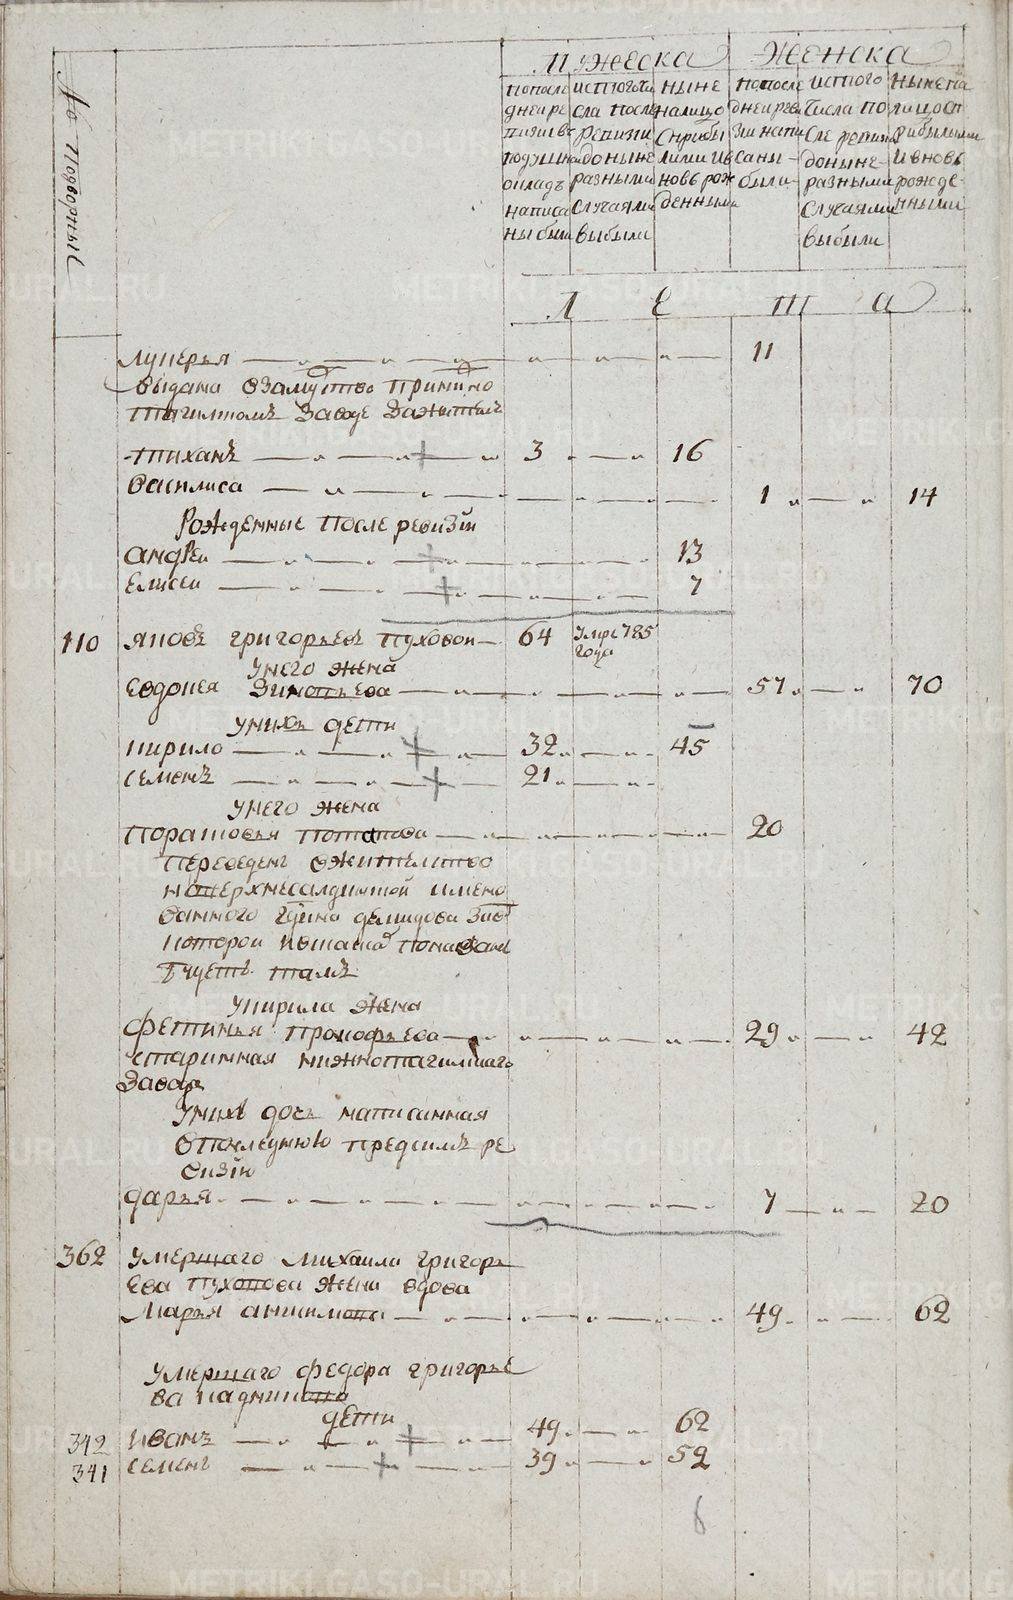 № подворныя
Мужеска Женска
попосле
дней ре
визии в
подушной
окладъ
написа
ны были
ис того чи
сла после
ревизии
до ныне
разными
случаями
выбыли
ныне
налицо
с прибы
лыми и в
новь рож
денными
попосле
дней реви
зии напи
саны
были
ис того
числа по
сле ревизии
до ныне
разными
случаями
выбыли
ныне на
лицо с п
рибылыми
и вновь
рожде
нными
Л е т а
Лукерья 11
выдана взамужство принижно
тагилском заводе за жителя
Тиханъ 3 16
Василиса 1 14
Рожденные после ревизiи
Андреи 13
Елисеи 7
110 Яковъ Григорьевъ Пуховои 64 умре 785
года
у него жена
Евдокея Зинотьева 57 70
у нихъ дети
Кирило 32 45
Семенъ 21
у него жена
Парасковья Потапова 20
переведенъ вжителство
на верхнесалдинской имено
ванного гдина демидова завод
которои и писатца показан
будетъ тамъ
у Кирила жена
Фетинья Прокофьева 29 42
старинная нижнотагилскаго
завода
у них дочь написанная
в последнюю пред симъ ре
визiю
Дарья 7 20
362 Умершаго Михаила Григорь
ева Пухова жена вдова
Марья 49 62
Умершаго Федора Григорье
ва
дети
342 Иванъ 49 62
341 Семенъ 39 52
6
METRIKI.GASO-URAL.RU